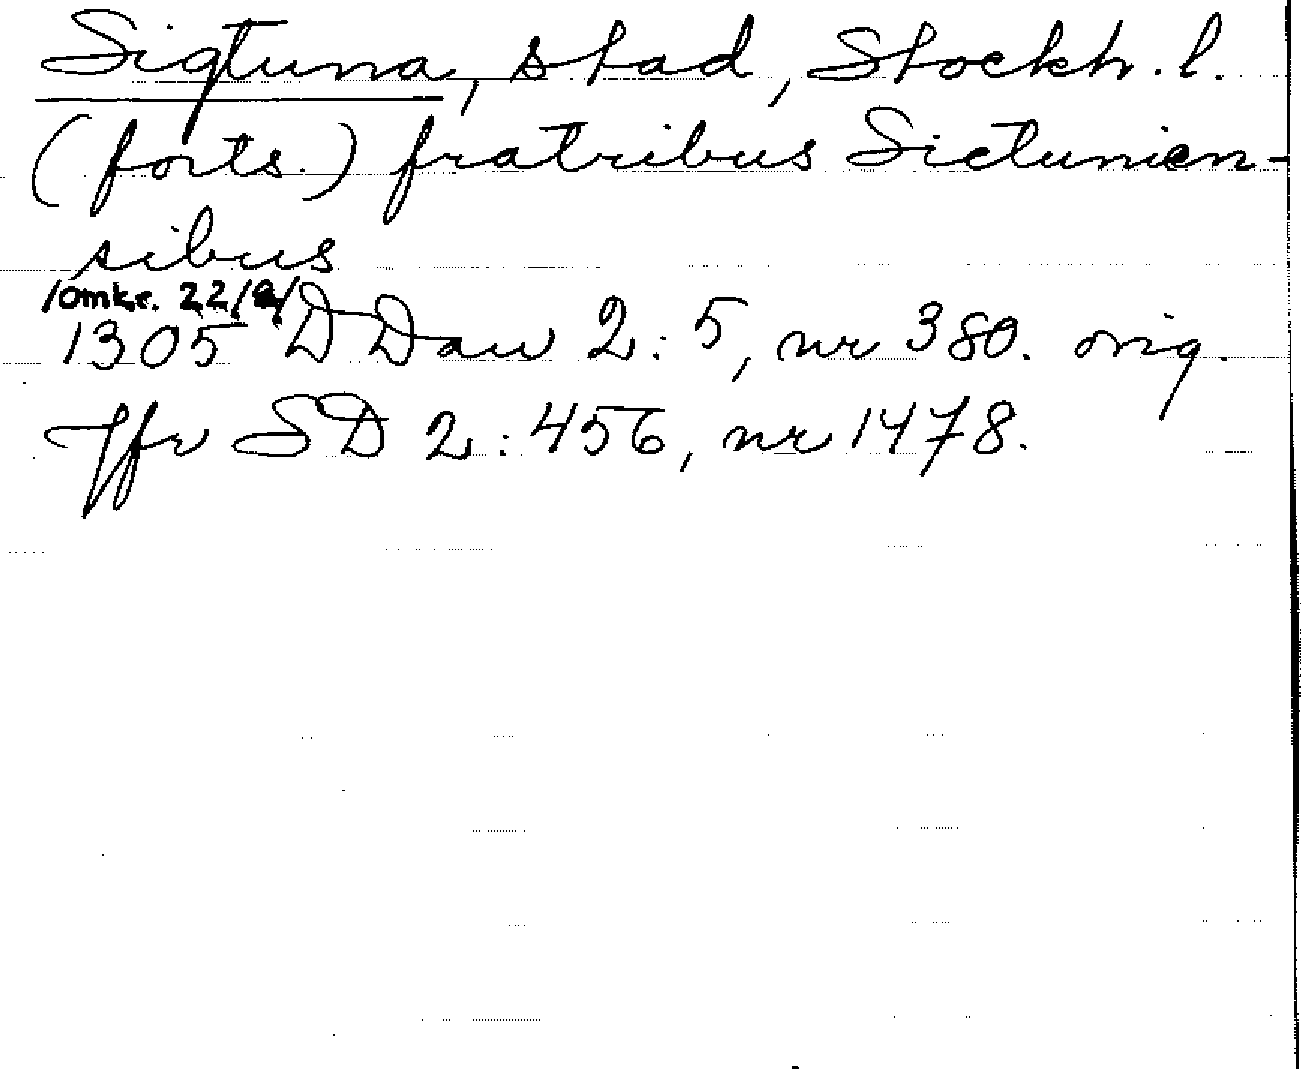 Sigtuna, stad, Stockh. l.
(forts.) fratribus Sictunien-
sibus
/omkr. 22/
1305 DDan 2:5, nr 380. orig.
Jfr SD 2:456, nr 1478.